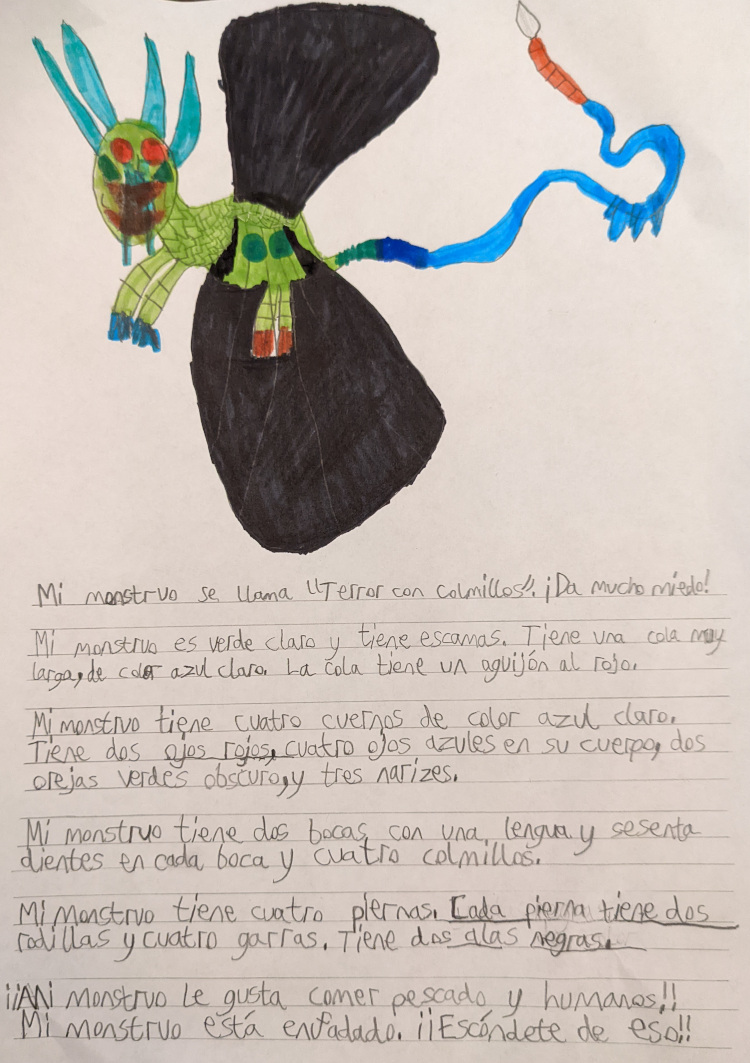 Mi monstruo se llama "Terror con colmillos". ¡Da mucho miedo!
Mi monstruo es verde claro y tiene escamas. Tiene una cola muy
larga, de color azul claro. La cola tiene un aguijón al rojo.
Mi monstruo tiene cuatro cuernos de color azul claro.
Tiene dos ojos rojos, cuatro ojos azules en su cuerpo, dos
orejas verdes obscuro, y tres narizes.
Mi monstruo tiene dos bocas con una lengua y sesenta
dientes en cada boca y cuatro colmillos.
Mi monstruo tiene cuatro piernas. Cada pierna tiene dos
rodillas y cuatro garras. Tiene dos alas negras.
¡¡A Mi monstruo le gusta comer pescado y humanos!!
Mi monstruo está enfadado. ¡¡Escóndete de eso!!